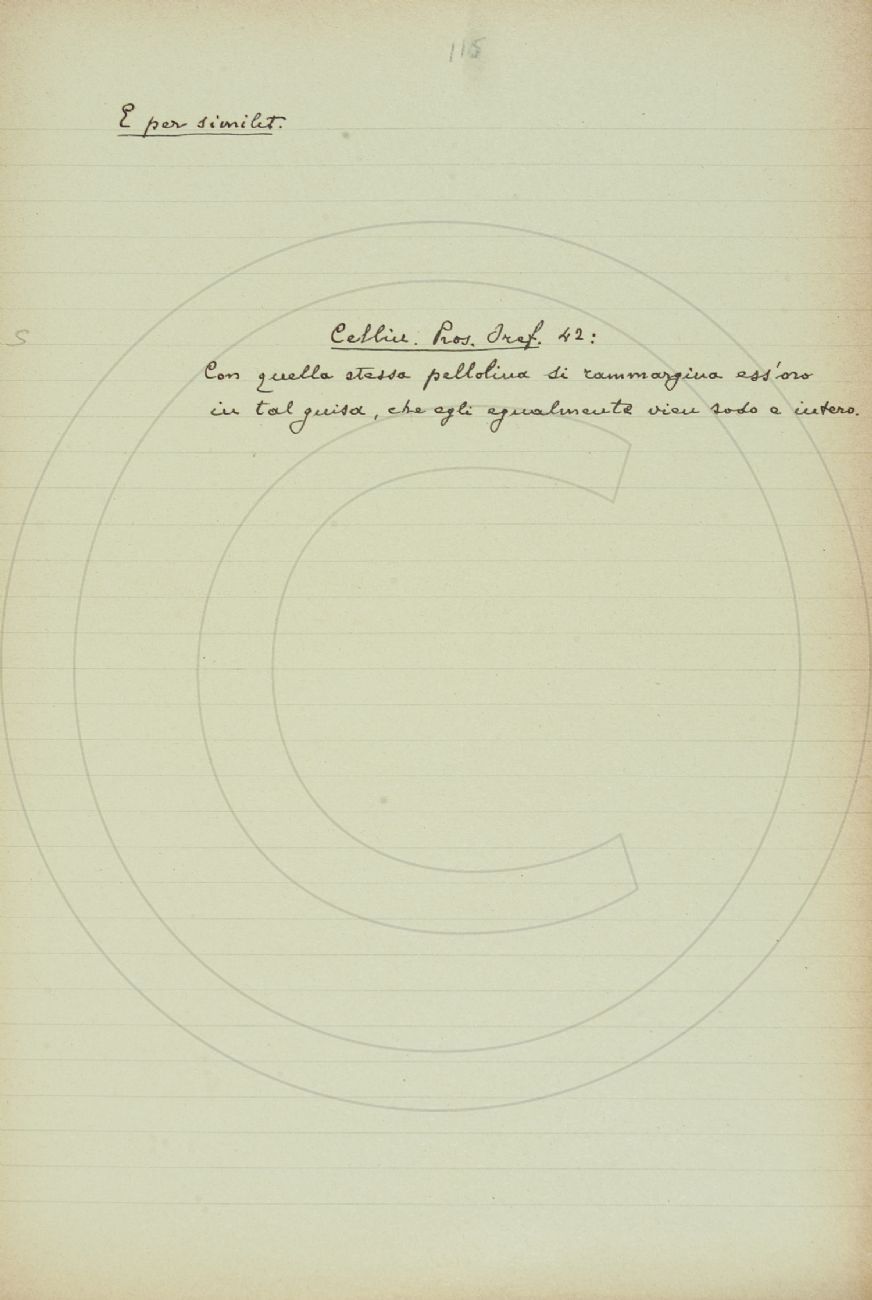 115
E per similit.
S
Cellin. Pros. Oref. 42:
Con quella stessa pallolina si rammargina ess'oro
in tal guisa, che egli egualmente vien sodo e intero.